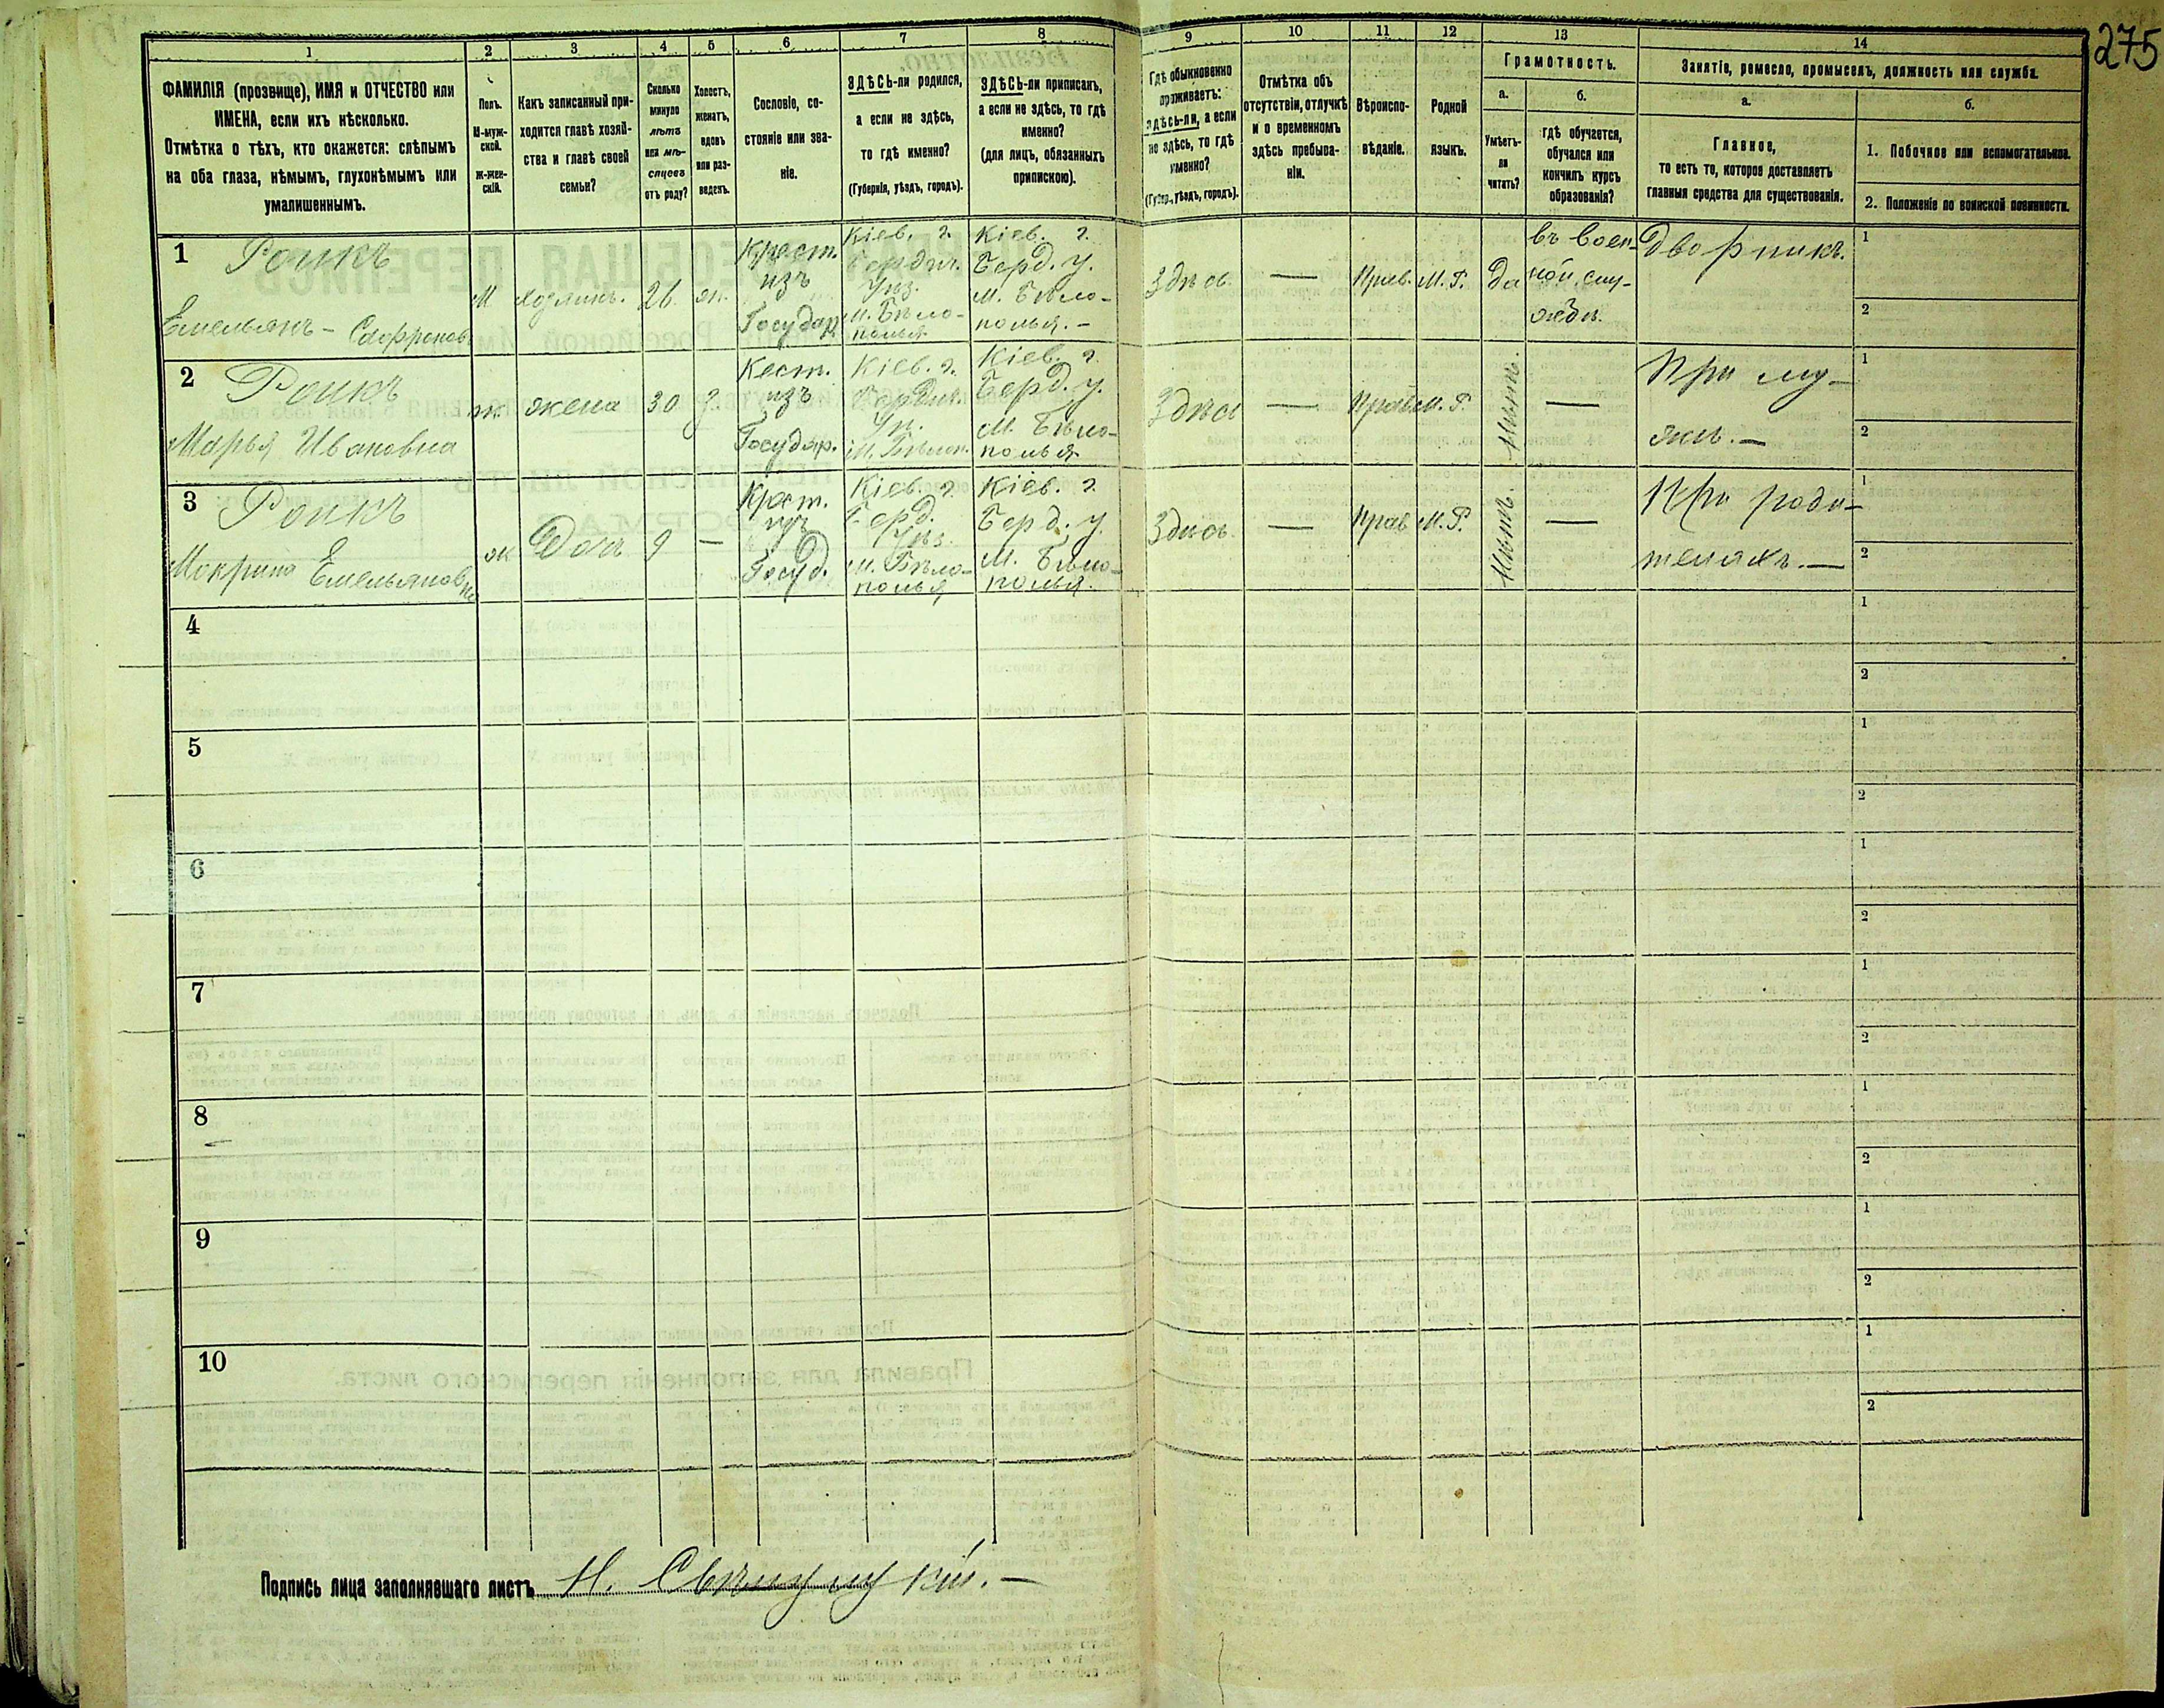 275
1 2 3 4 5 6 7 8 9 10 11 12 13 14
ФАМИЛІЯ (прозвище), ИМЯ и ОТЧЕСТВО или
ИМЕНА, если ихъ нѣсколько.
Отмѣтка о тѣхъ, кто окажется: слѣпымъ
на оба глаза, нѣмымъ, глухонѣмымъ или
умалишеннымъ.
Полъ.
М-муж-
ской.
ж-жен-
скій.
Какъ записанный при-
ходится главѣ хозяй-
ства и главѣ своей
семьи?
Сколько
минуло
лѣтъ
или мѣ-
сяцевъ
отъ роду?
Холостъ,
женатъ,
вдовъ
или раз-
веденъ.
Сословіе, со-
стояніе или зва-
ніе.
ЗДѢСЬ-ли родился,
а если не здѣсь,
то гдѣ именно?
(Губернія, уѣздъ, городъ).
ЗДѢСЬ-ли приписанъ,
а если не здѣсь, то гдѣ
именно?
(для лицъ, обязанныхъ
припискою).
Гдѣ обыкновенно
проживаетъ:
здѣсь-ли, а если
не здѣсь, то гдѣ
именно?
(Губер., уѣздъ, городъ).
Отмѣтка объ
отсутствіи, отлучкѣ
и о временномъ
здѣсь пребыва-
ніи.
Вѣроиспо-
вѣданіе.
Родной
языкъ.
Грамотность.
а.
Умѣетъ-
ли
читать?
б.
гдѣ обучается,
обучался или
кончилъ курсъ
образованія?
Занятіе, ремесло, промыселъ, должность или служба.
а.
Главное,
то есть то, которое доставляетъ
главныя средства для существованія.
б.
1. Побочное или вспомогательное.
2. Положеніе по воинской повинности.
1
Роикъ
Емельянъ - Софронов
М
хозяинъ.
26
жн.
Крест.
изъ
Государ.
Кіев. г.
Бердич.
Уѣз.
м. Бѣло-
полья
Кіев. г.
Берд. у.
М. Бѣло-
полья. -
Здѣсь
—
Прав.
М. Р.
да
въ воен-
ной слу-
жбѣ.
Дворникъ.
1
2
2
Роикъ
Марья Ивановна
ж
жена
30
з.
Кест.
изъ
Государ.
Кіев. г.
Бердич.
Уѣ.
М. Бѣлоп.
Кіев. г.
Берд. у.
М. Бѣло-
полья
Здѣсь
—
Прав.
М. Р.
Нѣтъ.
—
При му-
жѣ. —
1
2
3
Роикъ
Макрина Емельяновна
ж
Дочь
9
—
Крест.
изъ
Госуд.
Кіев. г.
Берд.
Уѣз.
м. Бѣло-
полья
Кіев. г.
Берд. у.
М. Бѣло-
полья.
Здѣсь
—
Прав.
М. Р.
Нѣтъ.
—
При роди-
теляхъ. —
1
2
4
1
2
5
1
2
6
1
2
7
1
2
8
1
2
9
1
2
10
1
2
Подпись лица заполнявшаго листъ Н.